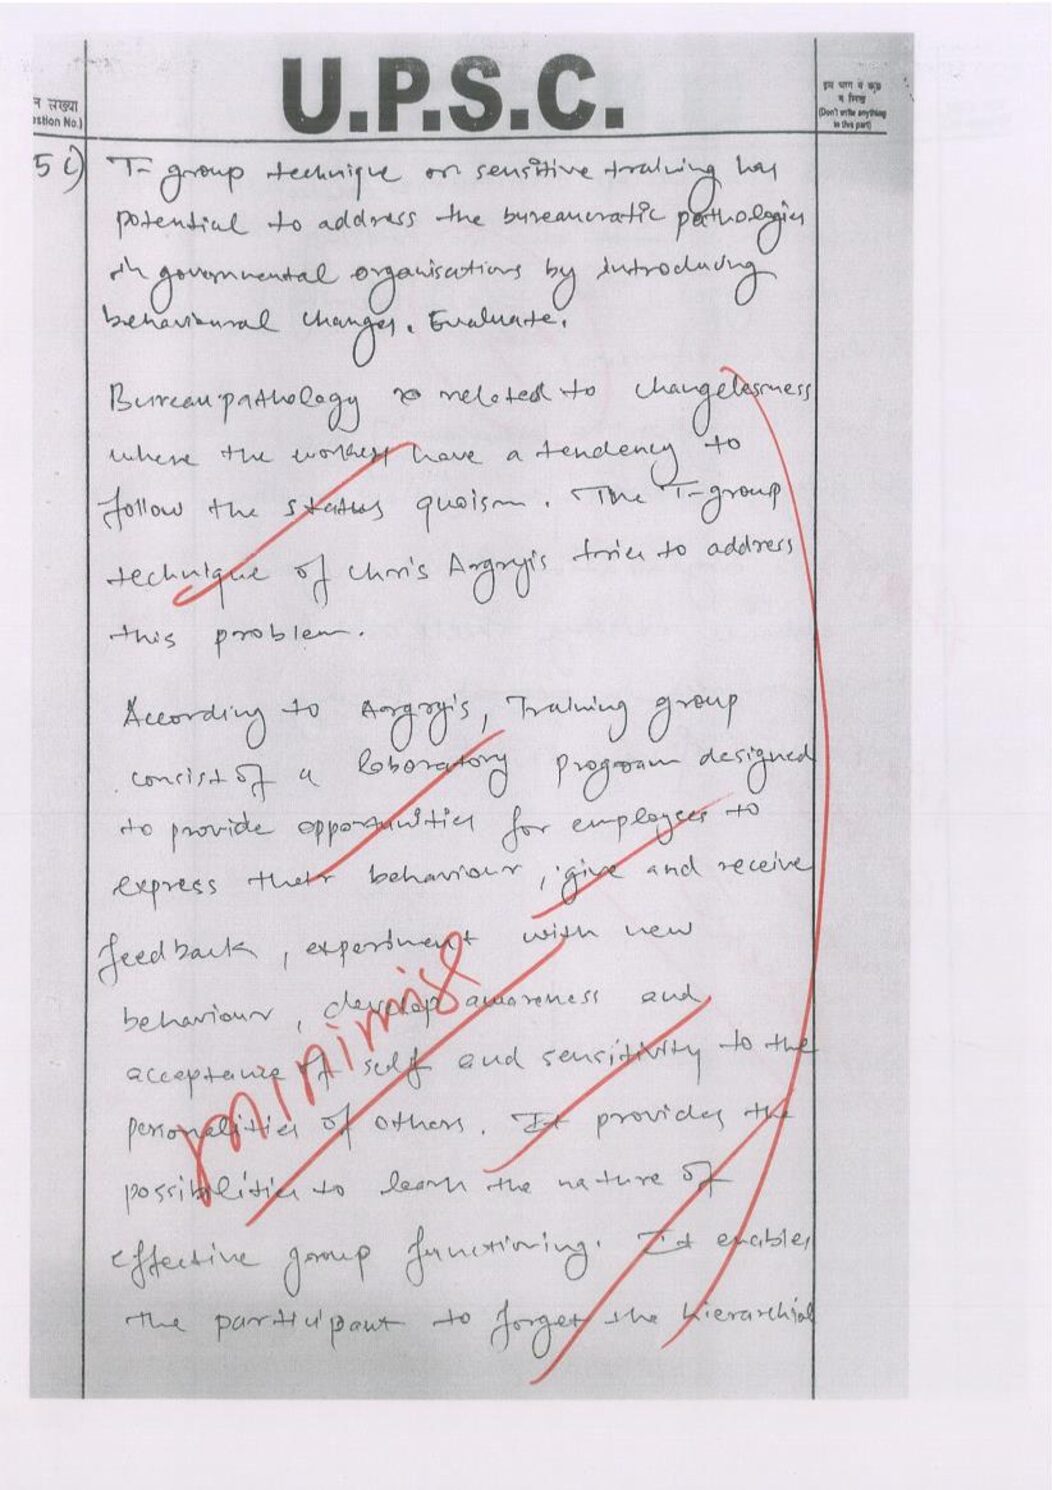 U.P.S.C.
न संख्या
stion No.)
(Don't write anything
in this part)
5 c)
T-group technique or sensitive training has
potential to address the bureaucratic pathologies
in governmental organisations by introducing
behavioural changes. Evaluate.
Bureaupathology is related to changelessness
where the workers have a tendency to
follow the status quoism. The T-group
technique of Chris Argryis tries to address
this problem.
According to Aorgryis, Training group
consist of a laboratory program designed
to provide opportunities for employees to
express their behaviour, give and receive
feedback, experiment with new
behaviour, develop awareness and
acceptance of self and sensitivity to the
personalities of others. It provides the
possibilities to learn the nature of
effective group functioning. It enables
the participant to forget the hierarchial
minimise